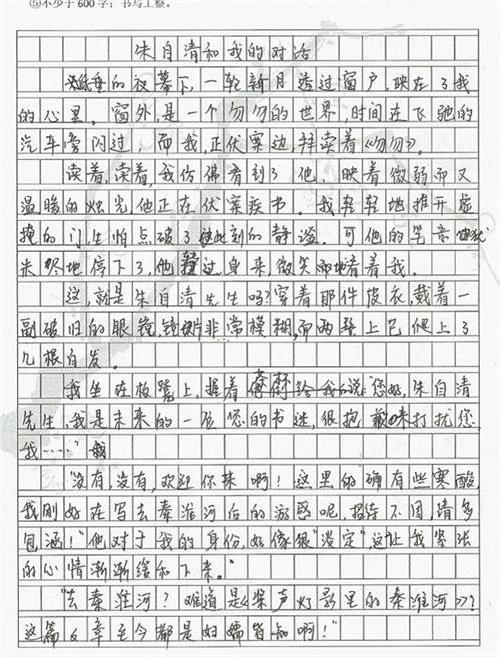 ⑤不少于600字；书写工整。
朱自清和我的对话
低垂的夜幕下，一轮新月透过窗户，映在了我
的心里。窗外，是一个匆匆的世界，时间在飞驰的
汽车旁闪过，而我，正伏案边，拜读着《匆匆》。
读着，读着，我仿佛看到了他，映着微弱而又
温暖的烛光，他正在伏案疾书。我轻轻地推开虚
掩的门生怕点破了此刻的静谧。可他的笔
地停下了，他转过身来微笑地看着我。
这，就是朱自清先生吗？穿着那件皮衣，戴着一
副破旧的眼镜，镜片非常模糊，而两鬓上已爬上了
几根白发。
我坐在板凳上，握着 说"您好，朱自清
先生，我是未来的一位您的书迷，很抱 来打扰您，
我……"
"没有，没有，欢迎你来啊！这里的确有些寒酸，
我刚好在写去秦淮河后的游感呢，招待不周，请多
包涵！"他对于我的身份，好像很"淡定"，这让我紧张
的心情渐渐缓和下来。
"去秦淮河？难道是《桨声灯影里的秦淮河》？
这篇文章至今都是妇孺皆知啊！"